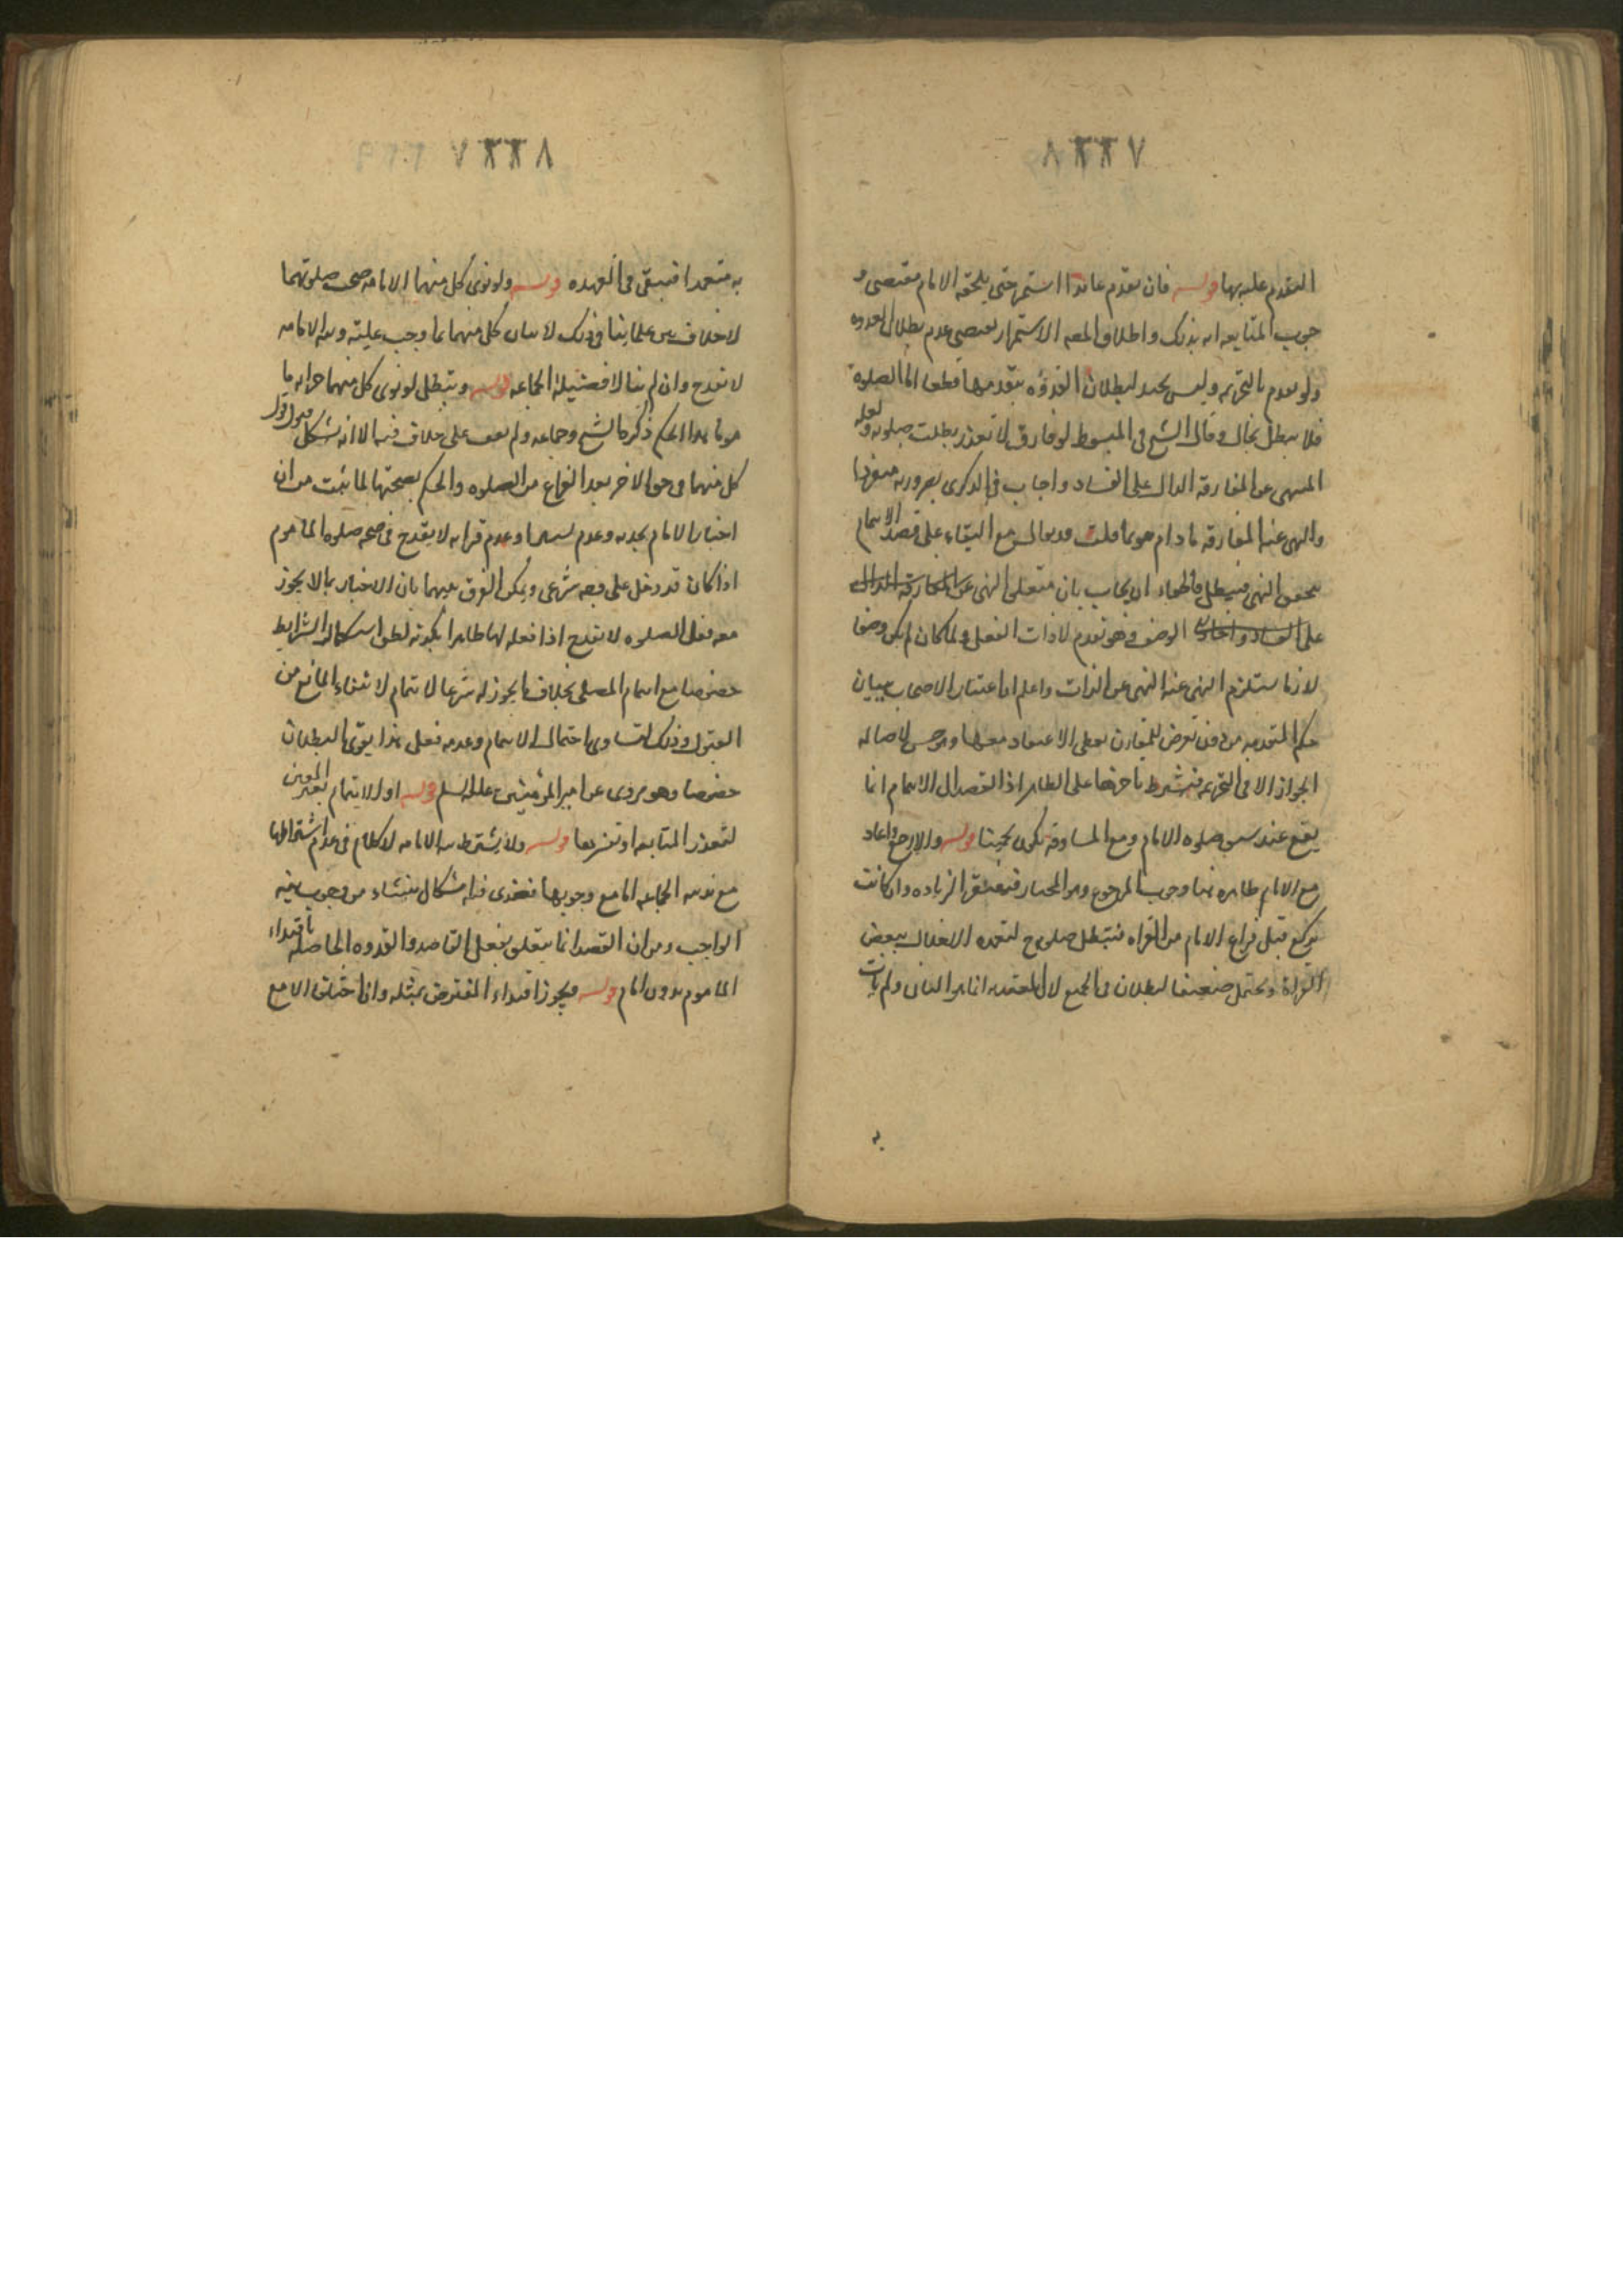 التقدم عليه بها قوله فان تقدم عامدا استمر حتى يلحقه الامام مقتضى و
جوب المتابعه انه بذلك واطلاق المص الاستمرار يقتضى عدم بطلان القدوه
ولو تقدم بالتحريمه وليس بجيد لبطلان القدوه بتقدمها قطعا اما الصلوة
فلا تبطل بحال وقال الشيخ فى المبسوط لو فارق لا لعذر بطلت صلوته ولعله
المنهى عن المفارقه الدال على الفساد واجاب فى الذكرى بصيرورته منفردا
والنهى عن المفارقه مادام موتما قلت مع البقاء على قصد الايتمام
يتحقق النهى فيبطل بان متعلق النهى عن المفارقه الدال
على الفساد واجاب الوصف وهو لا ذات الفعل ولما كان لم يكن وصفا
لازما يستلزم النهى عنه النهى عن الذات واعلم ان اعتناء الاصحاب ببيان
حكم المتقدم من دون تعرض للمقارن يعطى الاعتداد معها لاصاله
الجواز الا فى التحريمه فيشترط تاخرها على الظاهر اذ القصد الى الايتمام انما
يقع عند سبق صلوه الامام ومع المساوقه قوله والا رجع واعاد
مع الامام ظاهره هنا وجوب الرجوع وهو المختار فيغتفر الزياده وان كانت
ركع قبل فراغ الامام من القراه فتبطل صلوته ح لتعمده الاخلال ببعض
القراءة ويحتمل ضعيفا البطلان فى الجميع لان المعتد به انما هو الثانى ولم يات
به
به متعمدا فيبقى فى العهده قوله ولو نوى كل منهما الامامه صحت صلوتهما
لا خلاف بين علمائنا فى ذلك لاتيان كل منهما بما وجب عليه ونيه الامامه
لا تقدح وان لم ينالا فضيلة الجماعه قوله وتبطل لو نوى كل منهما انه ما
موما هذا الحكم ذكره الشيخ وجماعه ولم نقف على خلاف فيه الا انه يشكل قبول قول
كل منهما فى حق الاخر بعد الفراغ من الصلوه والحكم بصحتها لما ثبت من ان
اخبار الامام بحدثه وعدم تسترها وعدم قراءته لا يقدح فى صحه صلوه الماموم
اذا كان قد دخل على وجه شرعى ويمكن الفرق بينهما بان الاخبار بما لا يجوز
معه فعل الصلوه لا يقدح اذا فعله لها ظاهرا لكونه لظن استكمال الشرايط
خصوصا مع ايتمام المصلى بخلاف ما يجوز له شرعا لا يتمام لانتفاء المانع من
القبول وذلك لتساوى احتمال الايتمام وعدمه فعلى هذا يقوى البطلان
خصوصا وهو مروى عن امير المؤمنين عليه السلم قوله او الايتمام بغير المعين
لتعذر المتابعه او تعسرها قوله ولا يشترط نيه الامامه لا كلام فى عدم اشتراطها
مع ندبيه الجماعه اما مع وجوبها فعندى فيه اشكال ينشاء من وجوب نيه
الواجب ومن ان القصد انما يتعلق بفعل القاصد والقدوه الحاصله باقتداء
الماموم بدون امام قوله ويجوز اقتداء المفترض بمثله وان اختلفا الا مع